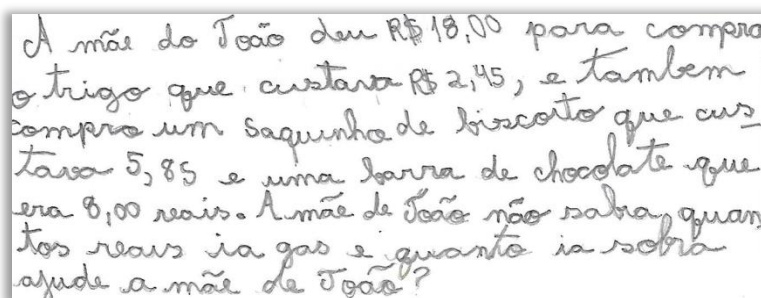 A mãe do João deu R$ 18,00 para compra
o trigo que custava R$ 2,45, e tambem
compro um saquinho de biscoito que cus
tava 5,85 e uma barra de chocolate que
era 8,00 reais. A mãe de João não sabia, quan
tos reais ia gas e quanto ia sobra
ajude a mãe de João?